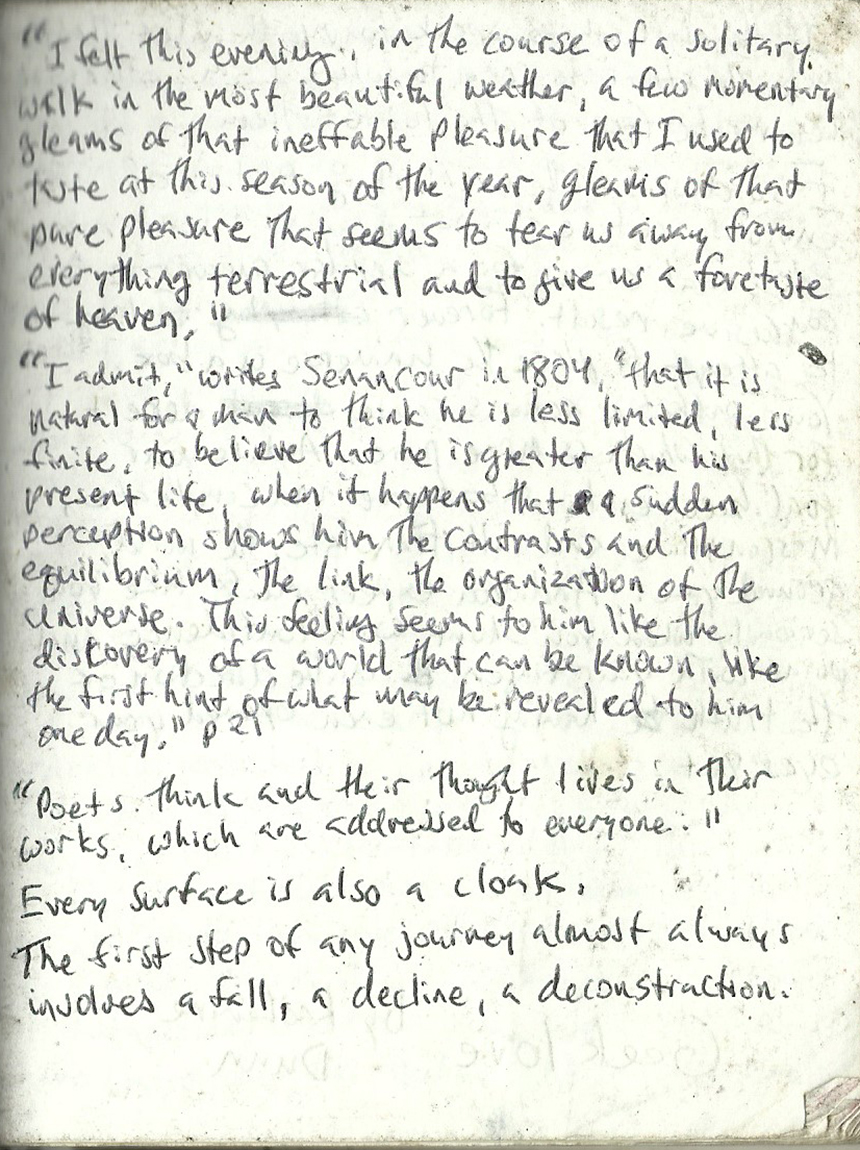 "I felt this evening, in the course of a solitary
walk in the most beautiful weather, a few momentary
gleams of that ineffable pleasure that I used to
taste at this season of the year, gleams of that
pure pleasure that seems to tear us away from
everything terrestrial and to give us a foretaste
of heaven,"
"I admit," writes Senancour in 1804, "that it is
natural for a man to think he is less limited, less
finite, to believe that he is greater than his
present life, when it happens that a sudden
perception shows him the contrasts and the
equilibrium, the link, the organization of the
universe. This feeling seems to him like the
discovery of a world that can be known, like
the first hint of what may be revealed to him
one day." p 21
"Poets think and their thought lives in their
works, which are addressed to everyone."
Every surface is also a cloak.
The first step of any journey almost always
involves a fall, a decline, a deconstruction.